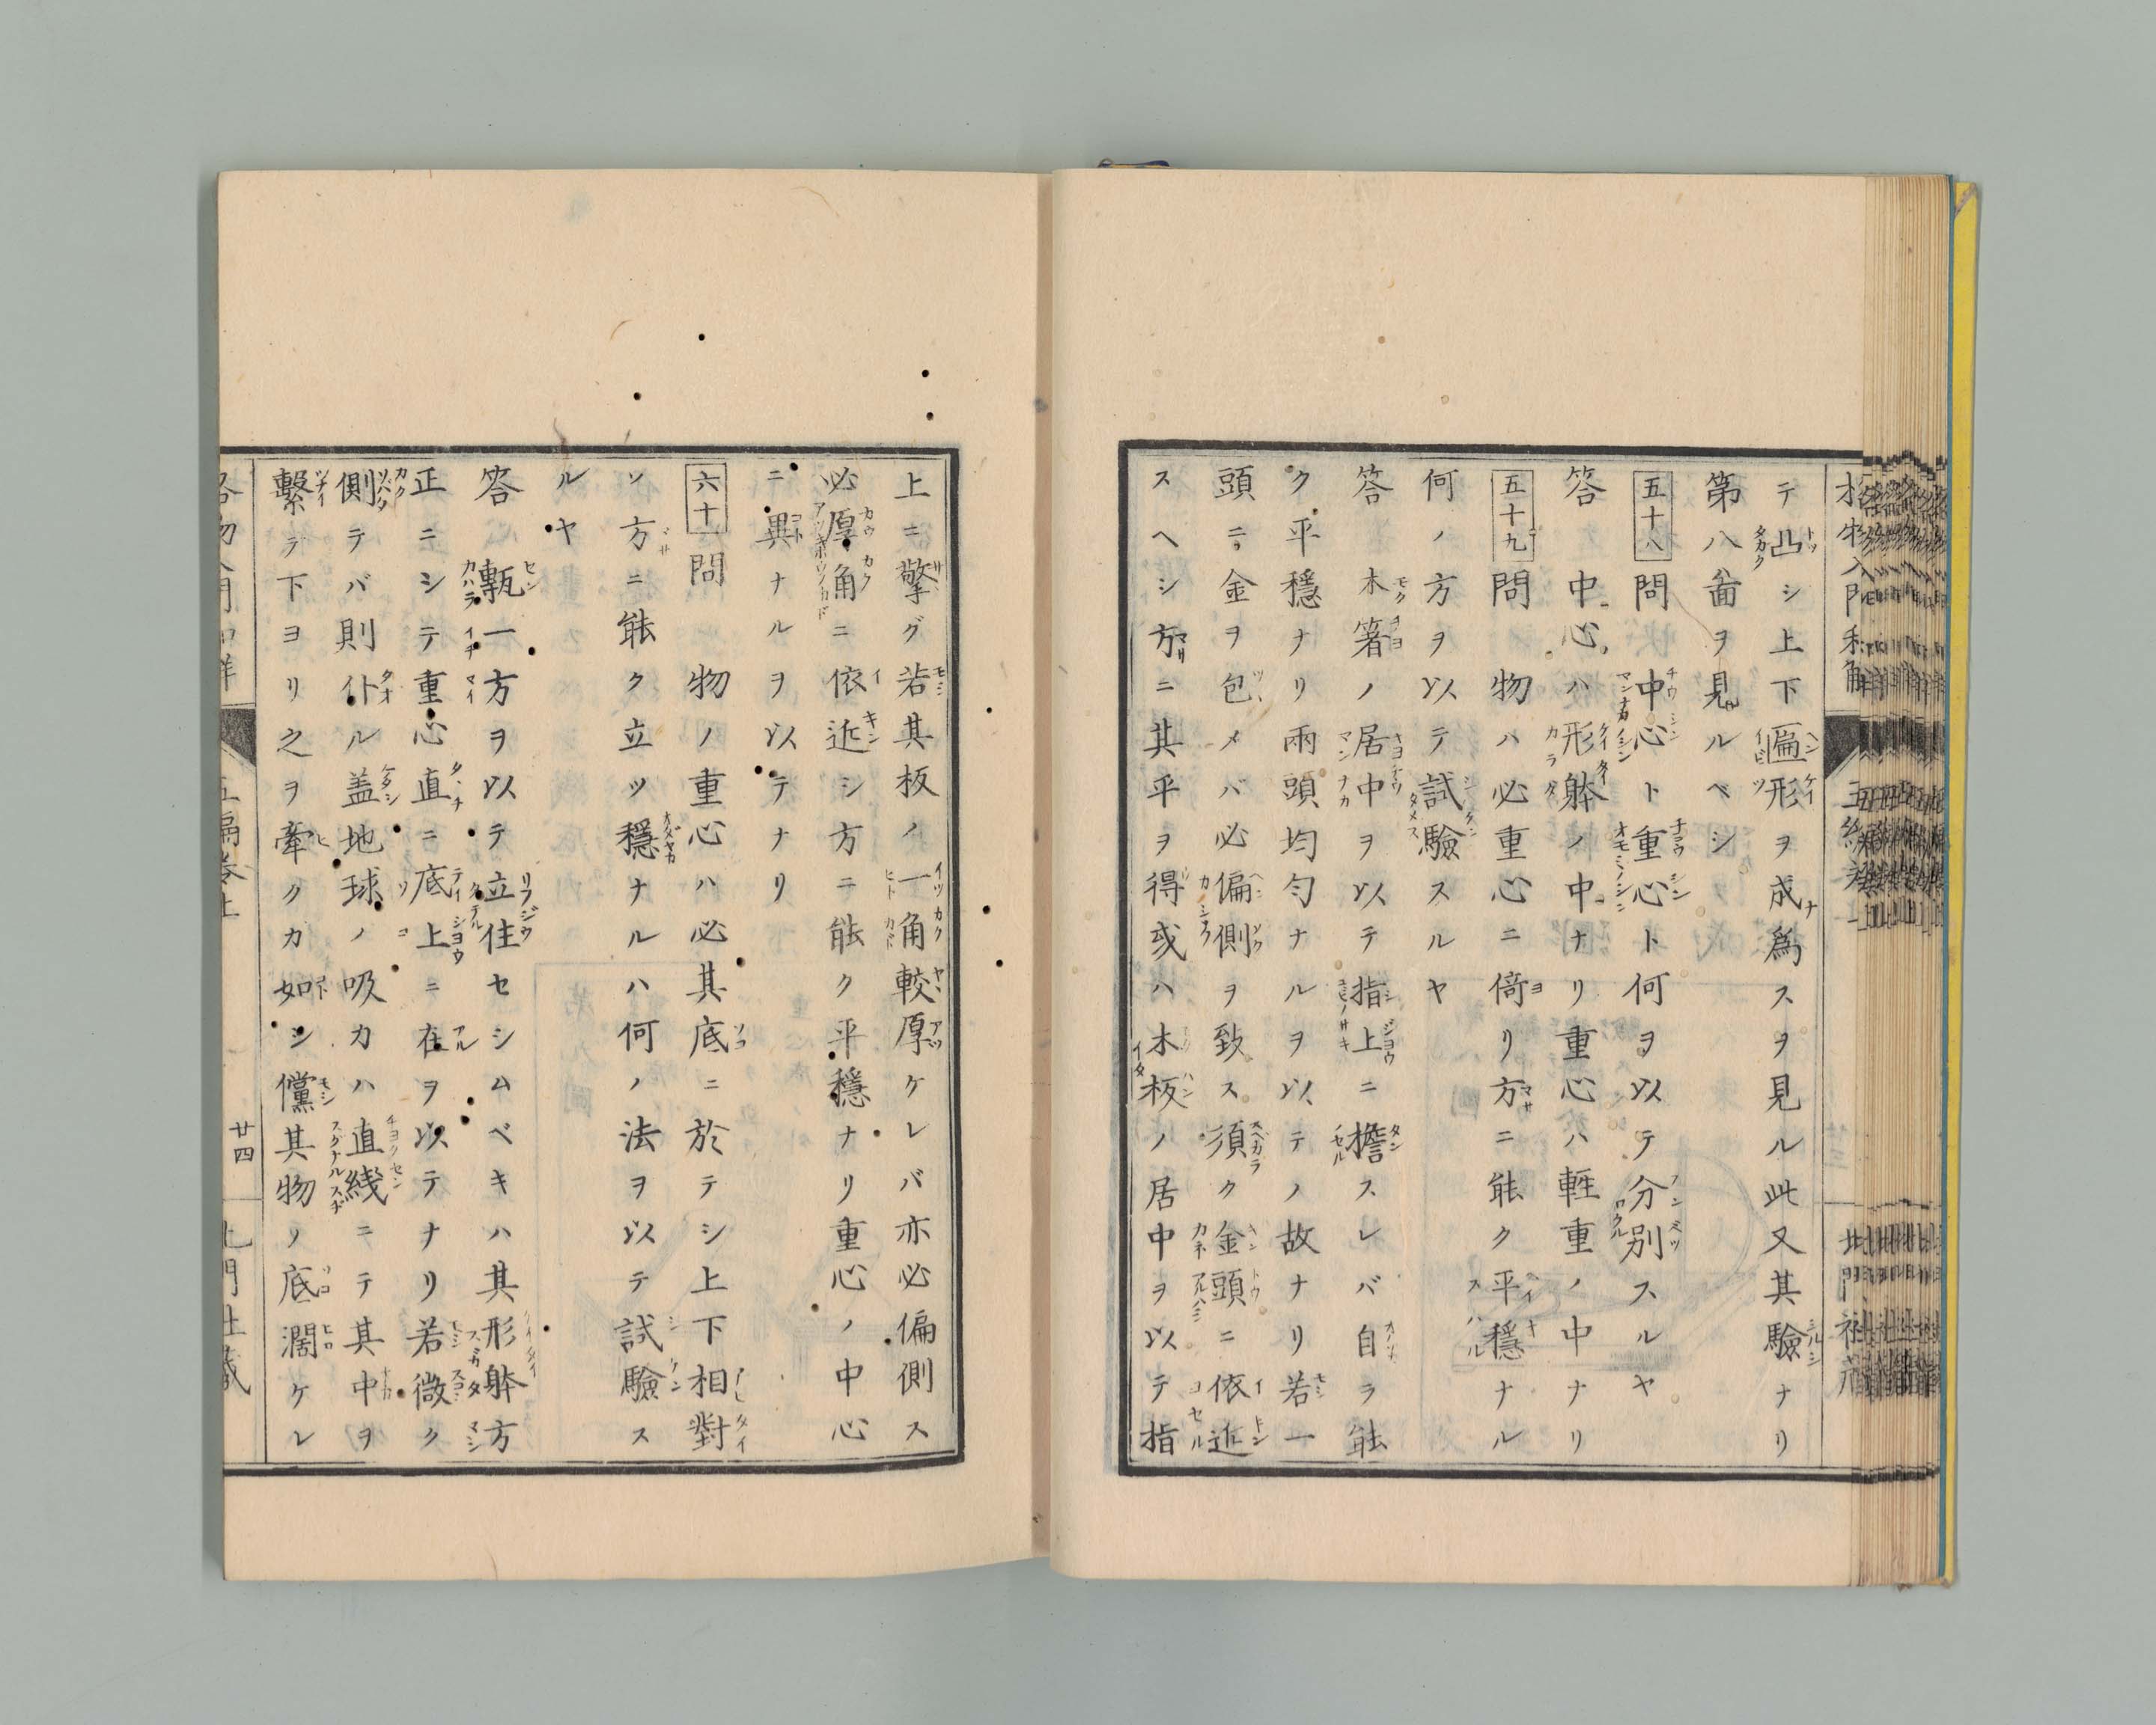 テ凸シ上下匾形ヲ成爲スヲ見ル此又其驗ナリ
第八啚ヲ見ルベシ
五十八 問 中心ト重心ト何ヲ以テ分別スルヤ
答 中心ハ形躰ノ中ナリ重心ハ輕重ノ中ナリ
五十九 問 物ハ必重心ニ倚リ方ニ能ク平穩ナル
何ノ方ヲ以テ試驗スルヤ
答 木箸ノ居中ヲ以テ指上ニ擔スレバ自ラ能
ク平穩ナリ兩頭均匀ナルヲ以テノ故ナリ若一
頭ニ金ヲ包メバ必偏側ヲ致ス須ク金頭ニ依近
スヘシ方ニ其平ヲ得或ハ木板ノ居中ヲ以テ指
上ニ擎グ若其板ノ一角較厚ケレバ亦必偏側ス
必厚角ニ依近シ方ニ能ク平穩ナリ重心ノ中心
ニ異ナルヲ以テナリ
六十 問 物ノ重心ハ必其底ニ於テシ上下相對
ソ方ニ能ク立ツ穩ナルハ何ノ法ヲ以テ試驗ス
ルヤ
答 甎一方ヲ以テ立住セシムベキハ其形躰方
正ニシテ重心直ニ底上ニ在ヲ以テナリ若微ク
側テバ則仆ル盖地球ノ吸力ハ直綫ニテ其中ヲ
繫テ下ヨリ之ヲ牽クカ如シ儻其物ノ底濶ケレ
格物入門和解
五編卷上
廿四
北門社藏